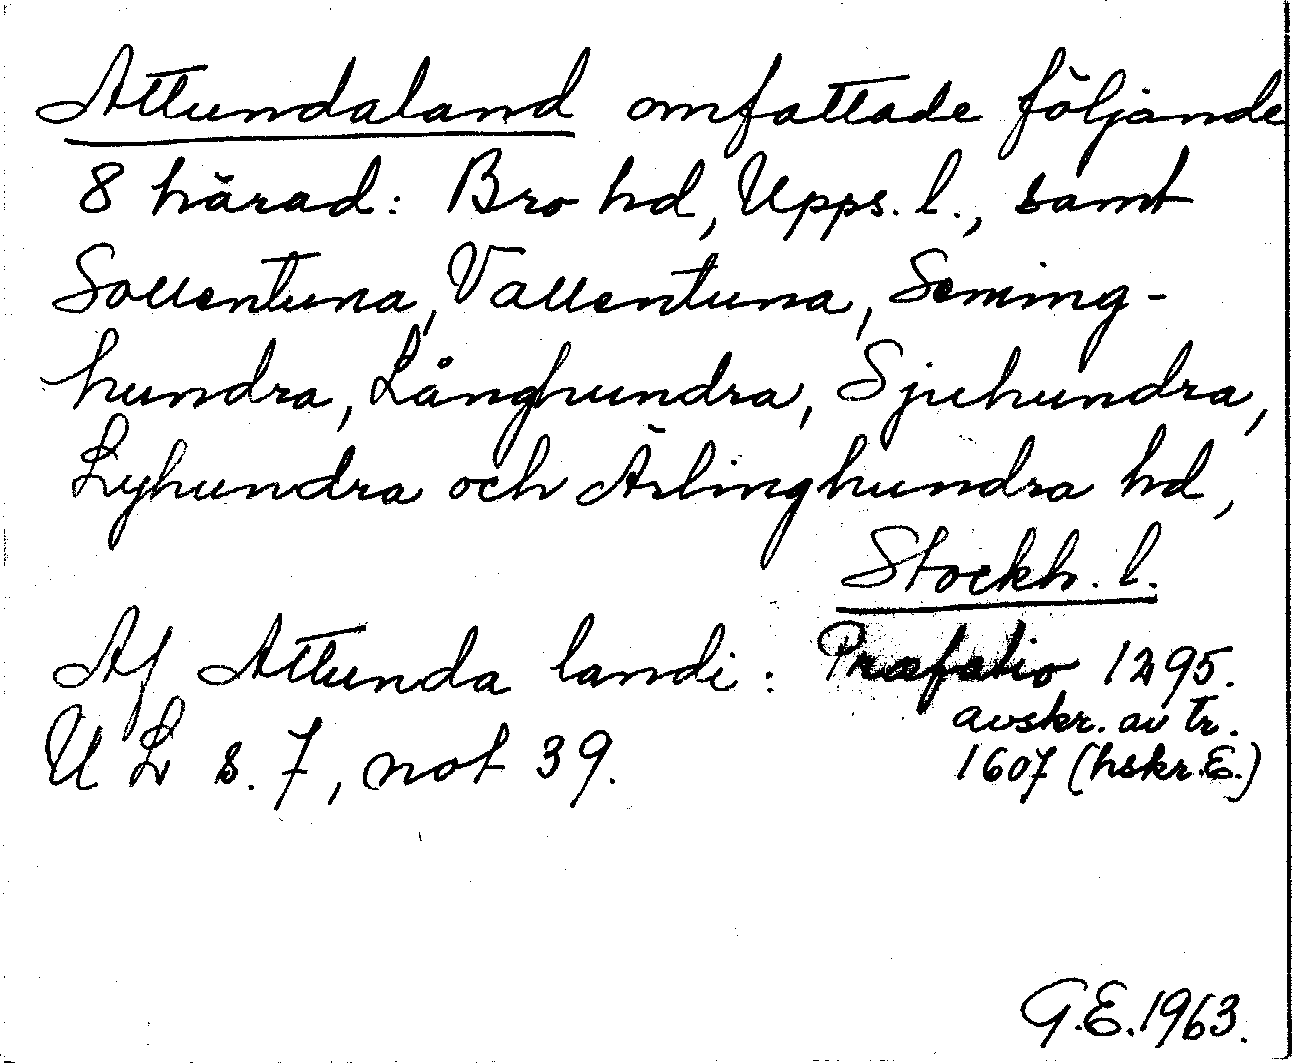 Attundaland omfattade följande
8 härad: Bro hd, Upps. l., samt
Sollentuna, Vallentuna, Seming-
hundra, Långhundra, Sjuhundra,
Lyhundra och Ärlinghundra hd,
Stockh. l.
Af Attunda landi: Præfatio 1295.
avskr. av tr.
U L s. 7, not 39.
1607 (hskr. E.)
G.E. 1963.